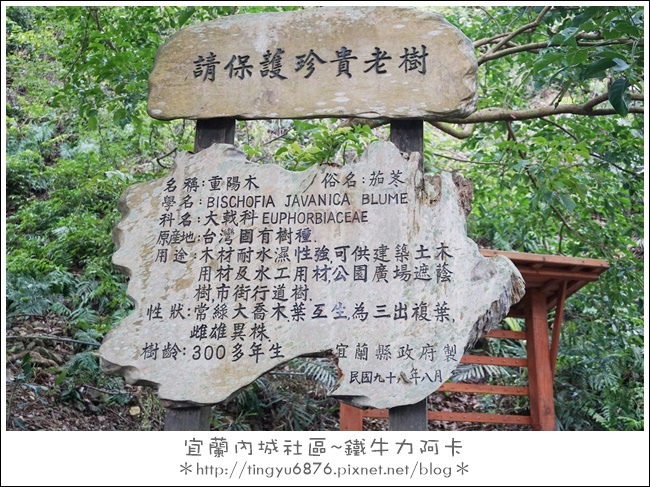 請保護珍貴老樹
名稱:重陽木 俗名:茄苳
學名:BISCHOFIA JAVANICA BLUME
科名:大戟科EUPHORBIACEAE
原產地:台灣國有樹種.
用途:木材耐水濕性強,可供建築土木
用材及水工用材,公園廣場遮蔭
樹,市街行道樹.
性狀:常綠大喬木,葉互生,為三出複葉,
雌雄異株.
樹齡:300多年生
宜蘭縣政府製
民國九十八年八月
宜蘭內城社區~鐵牛力阿卡
*http://tingyu6876.pixnet.net/blog*